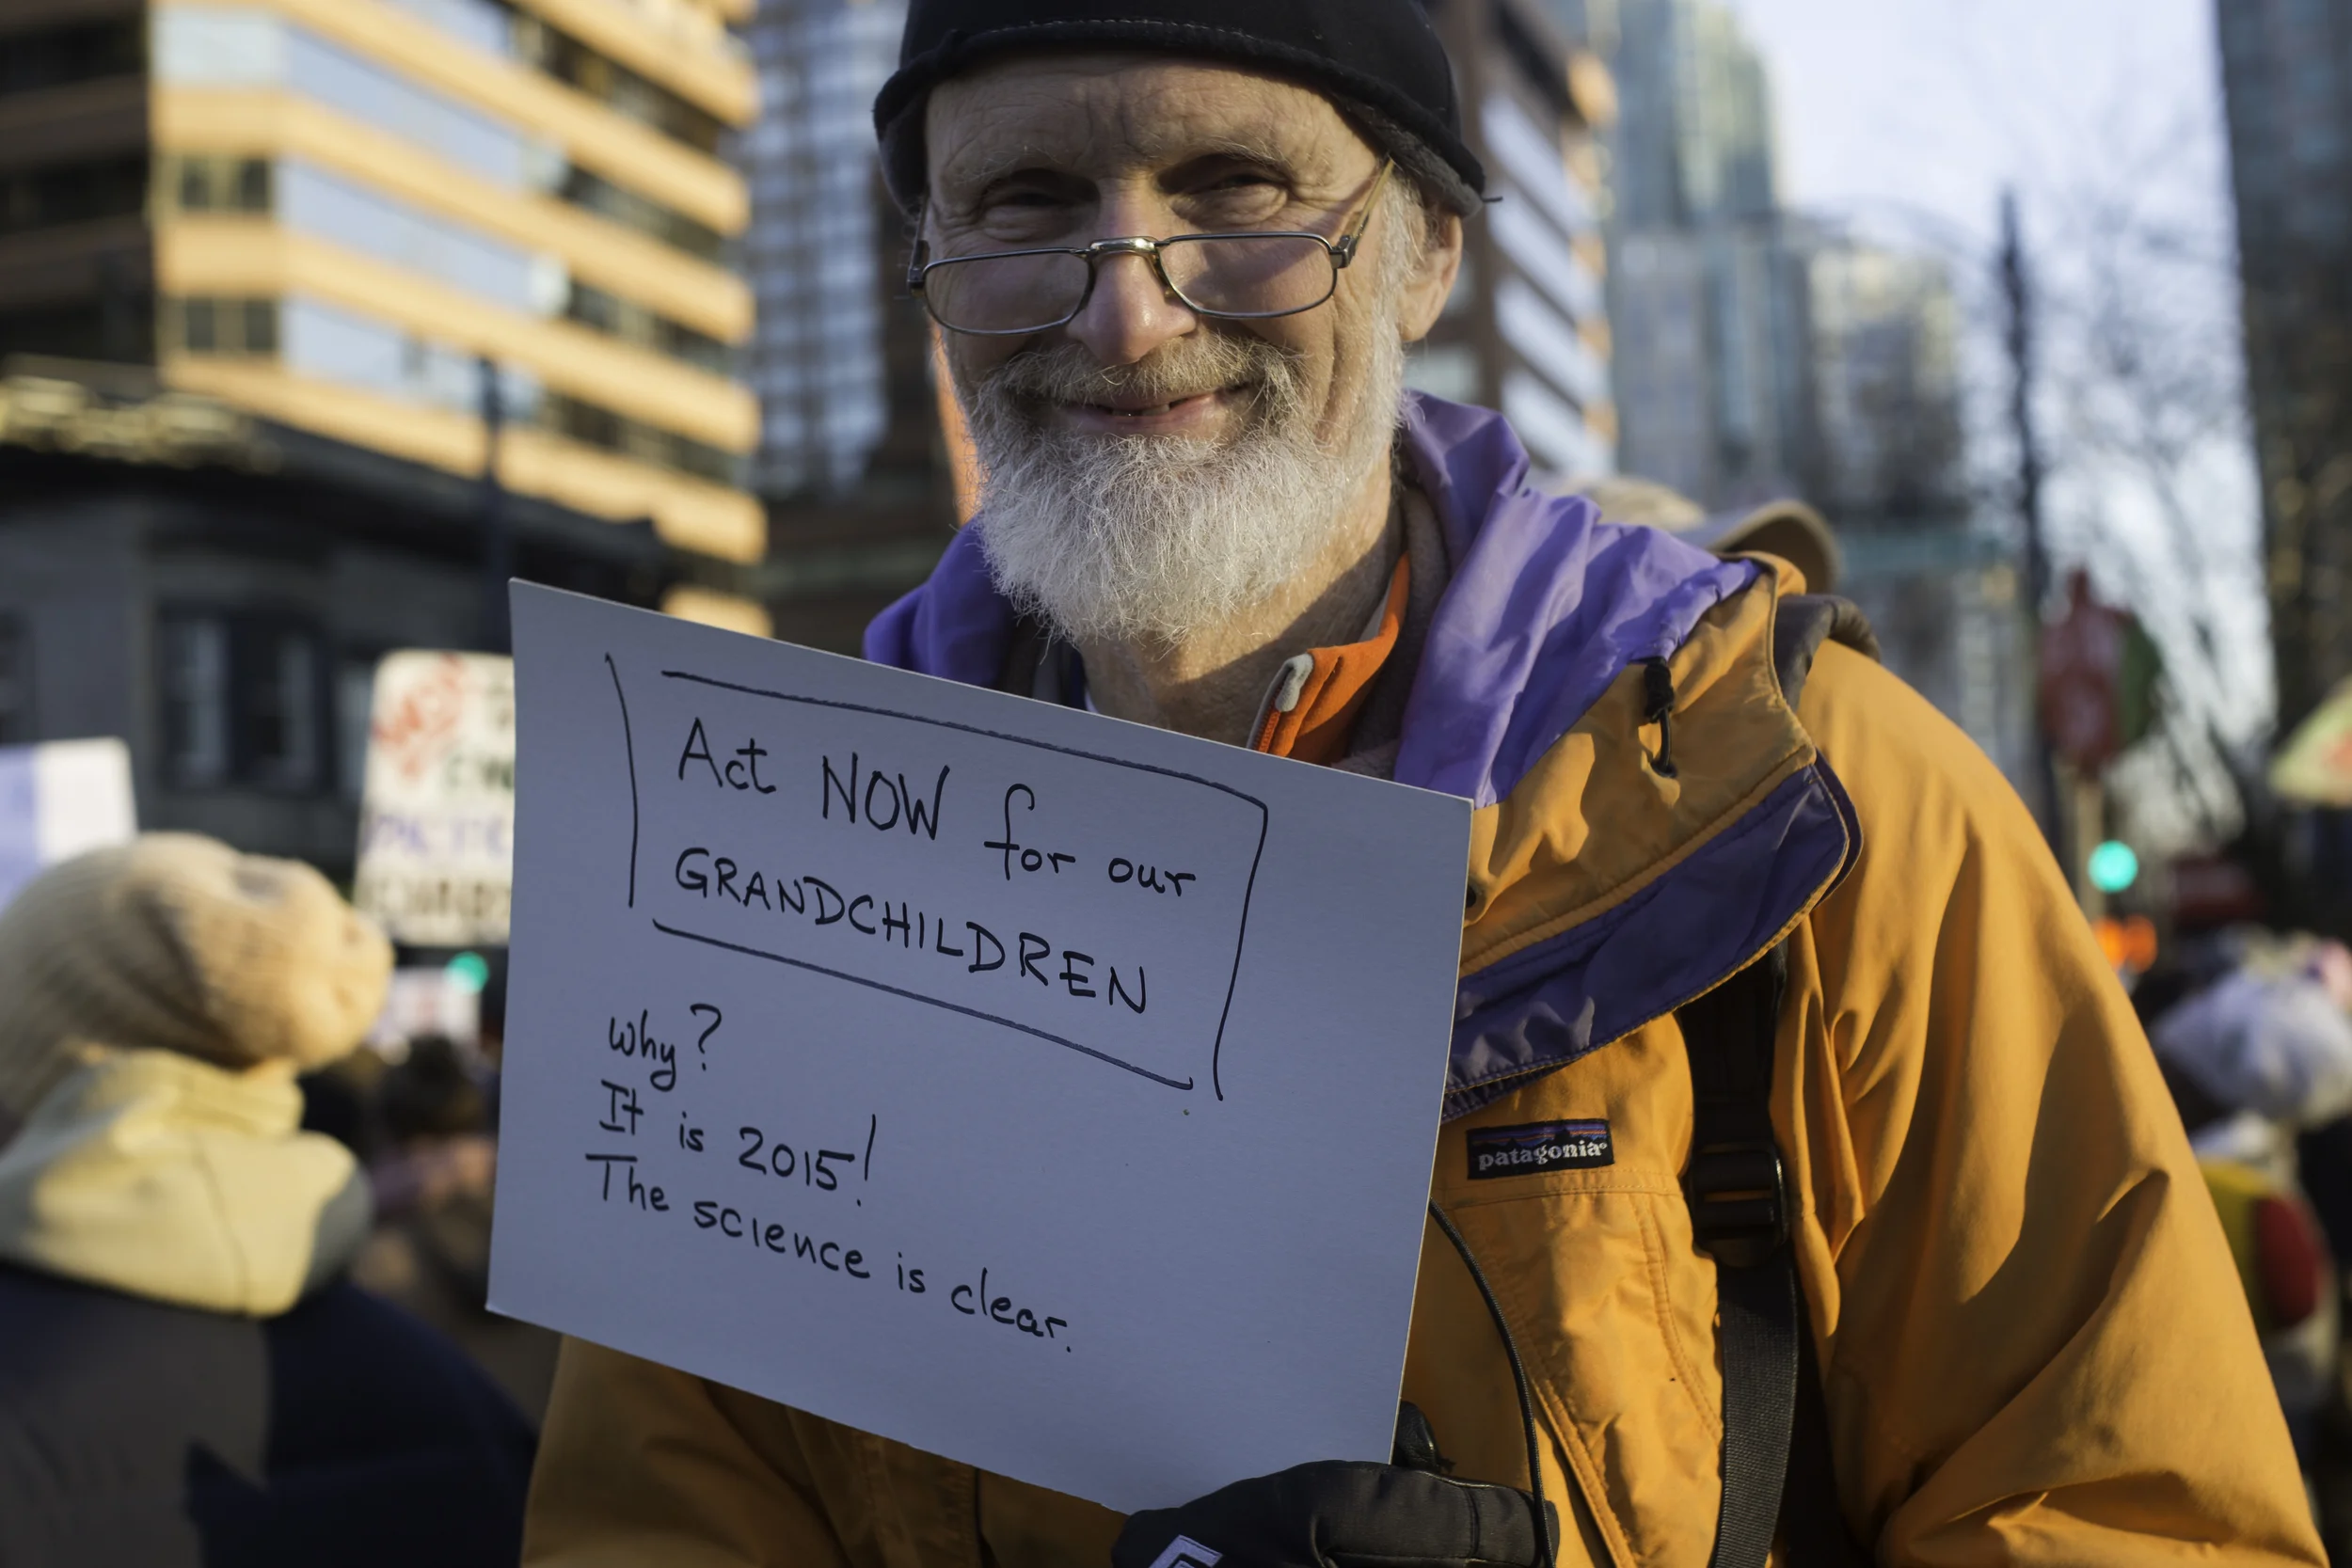 Act NOW for our
GRANDCHILDREN
Why?
It is 2015!
The science is clear.
patagonia®